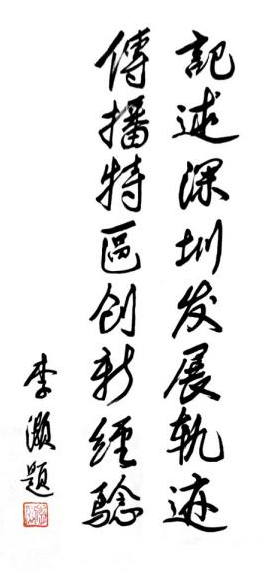 记述深圳发展轨迹
傳播特區创新經驗
李灏題